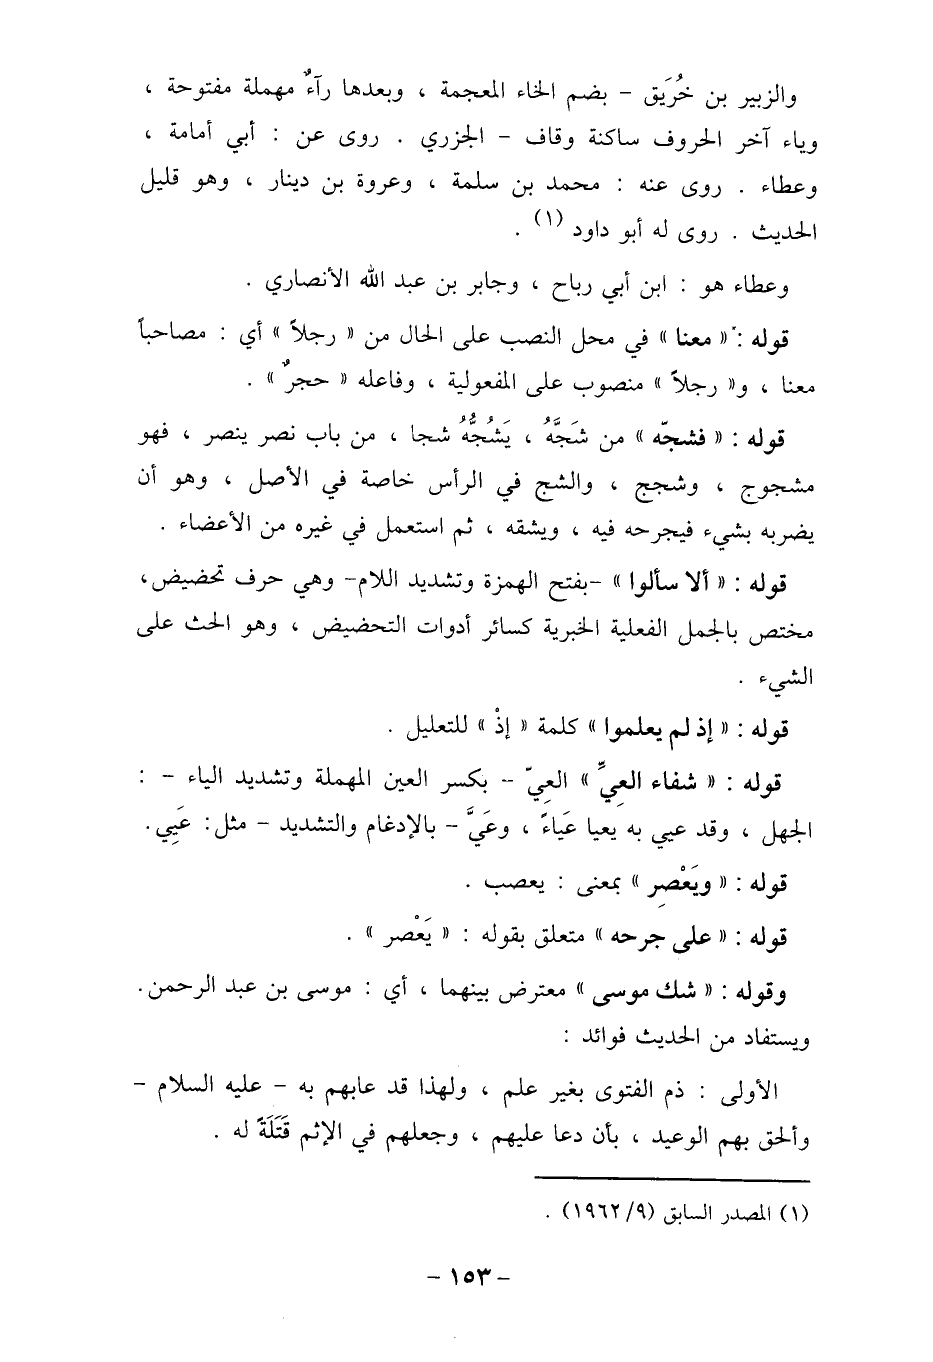 والزبير بن خُرَيق – بضم الخاء المعجمة ، وبعدها رآءٌ مهملة مفتوحة ،
وياء آخر الحروف ساكنة وقاف – الجزري . روى عن : أبي أمامة ،
وعطاء . روى عنه : محمد بن سلمة ، وعروة بن دينار ، وهو قليل
الحديث . روى له أبو داود (١) .
وعطاء هو : ابن أبي رباح ، وجابر بن عبد الله الأنصاري .
قوله : « معنا » في محل النصب على الحال من « رجلاً » أي : مصاحباً
معنا ، و« رجلاً » منصوب على المفعولية ، وفاعله « حجرٌ » .
قوله : « فشجّه » من شَجَّهُ ، يَشُجُّهُ شجا ، من باب نصر ينصر ، فهو
مشجوج ، وشجج ، والشج في الرأس خاصة في الأصل ، وهو أن
يضربه بشيء فيجرحه فيه ، ويشقه ، ثم استعمل في غيره من الأعضاء .
قوله : « ألا سألوا » -بفتح الهمزة وتشديد اللام- وهي حرف تحضيض،
مختص بالجمل الفعلية الخبرية كسائر أدوات التحضيض ، وهو الحث على
الشيء .
قوله : « إذ لم يعلموا » كلمة « إذْ » للتعليل .
قوله : « شفاء العِيِّ » العِيّ – بكسر العين المهملة وتشديد الياء – :
الجهل ، وقد عيي به يعيا عَياءً ، وعَيَّ – بالإدغام والتشديد – مثل : عَيِي.
قوله : « ويَعْصِر » بمعنى : يعصب .
قوله : « على جرحه » متعلق بقوله : « يَعْصر » .
وقوله : « شك موسى » معترض بينهما ، أي : موسى بن عبد الرحمن.
ويستفاد من الحديث فوائد :
الأولى : ذم الفتوى بغير علم ، ولهذا قد عابهم به – عليه السلام –
وألحق بهم الوعيد ، بأن دعا عليهم ، وجعلهم في الإثم قَتَلَةً له .
(١) المصدر السابق (٩/ ١٩٦٢) .
– ١٥٣ –